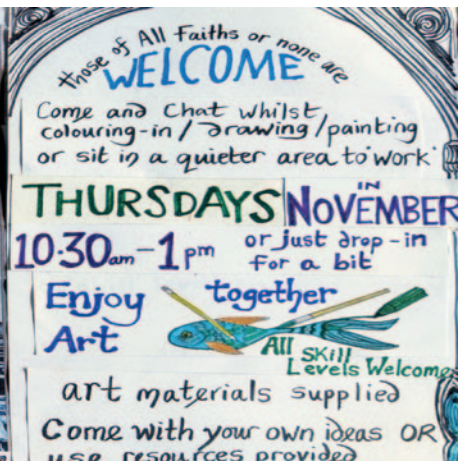 those of All Faiths or none are
WELCOME
Come and Chat whilst
colouring-in / drawing / painting
or sit in a quieter area to 'work'
THURSDAYS IN NOVEMBER
10·30am - 1pm or just drop-in
for a bit
Enjoy together
Art
All Skill
Levels Welcome
art materials supplied
Come with your own ideas OR
use resources provided